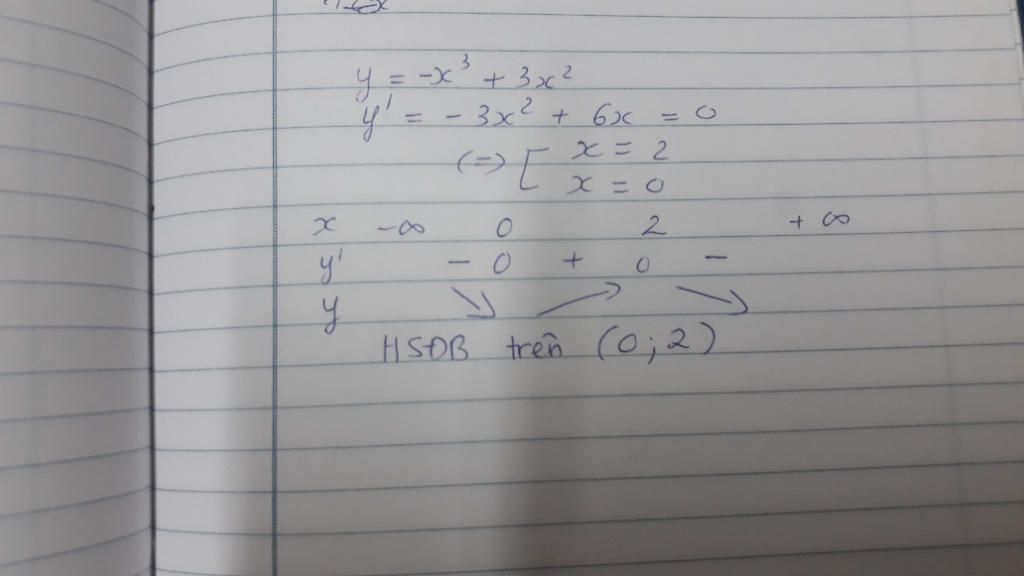 y = -x³ + 3x²
y' = - 3x² + 6x = 0
(=) [ x = 2
x = 0
x -∞ 0 2 + ∞
y' - 0 + 0 -
y ↘ ↗ ↘
HSĐB trên (0 ; 2)